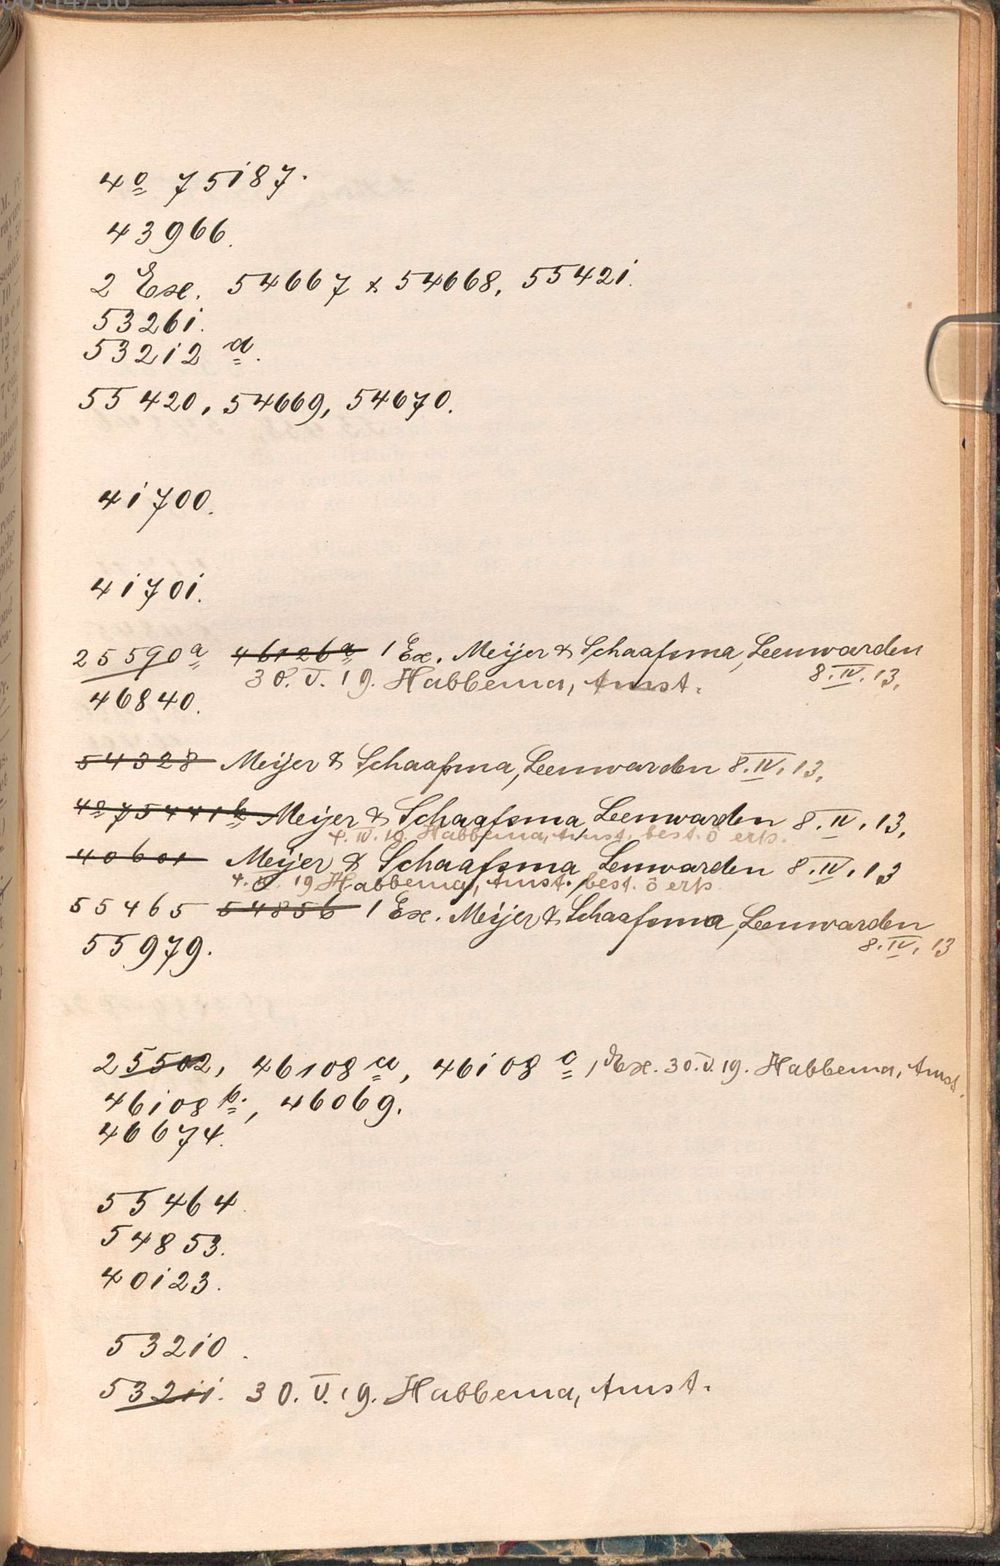 4o 75187.
43966.
2 Ex. 54667 & 54668, 55421.
53261.
53212 a.
55420, 54669, 54670.
41700.
41701.
25590a 46126a 1 Ex. Meijer & Schaafsma, Leeuwarden
30.V.19. Habbema, Amst. 8.IV.13.
46840.
54328 Meijer & Schaafsma, Leeuwarden 8.IV.13.
4o 75441b Meijer & Schaafsma Leeuwarden 8.IV.13.
4.IV.19 Habbema, Amst. best. ö erh.
40601 Meijer & Schaafsma Leeuwarden 8.IV.13
4. 19 Habbema, Amst. best. ö erh
55465 54856 1 Ex. Meijer & Schaafsma, Leeuwarden
8.IV.13
55979.
25502, 46108 a, 46108 c, 1 Ex. 30.V.19. Habbema, Amst.
46108 b., 46069.
46674.
55464.
54853.
40123.
53210.
53211. 30.V.19. Habbema, Amst.